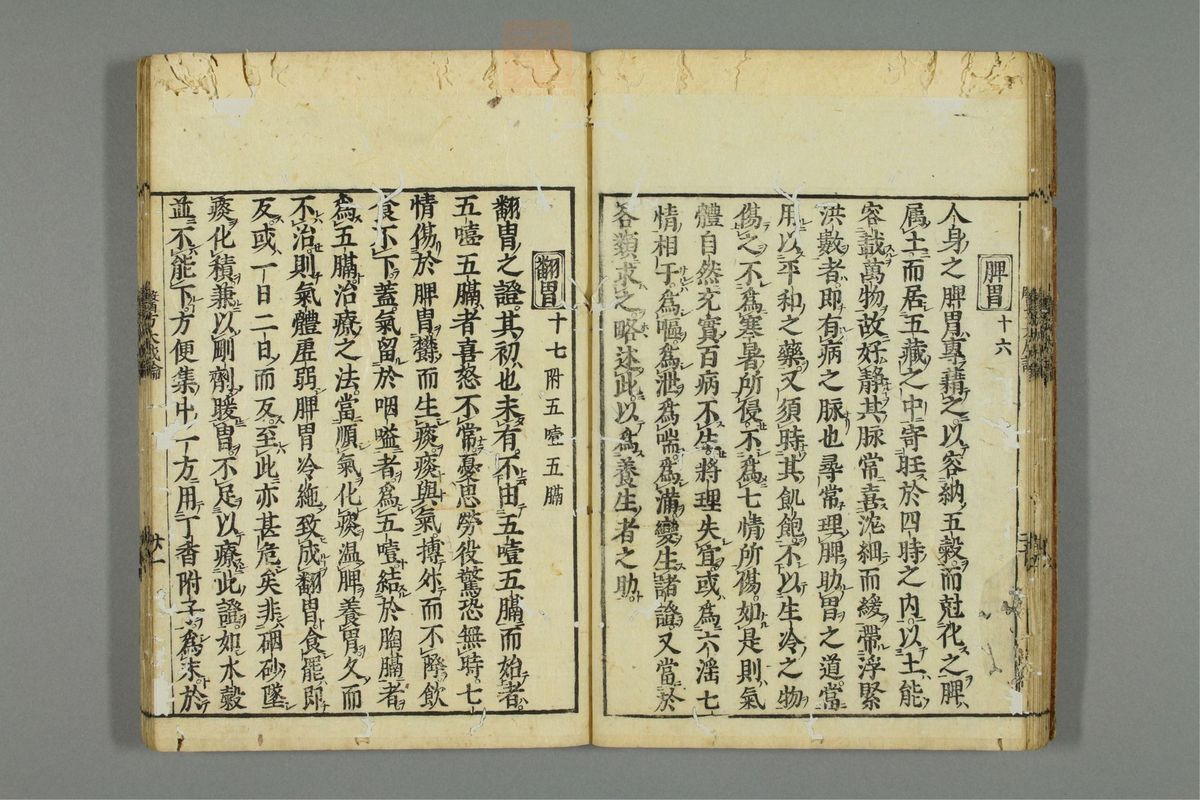 脾胃 十六
人身之脾胃專藉之以容納五穀而尅化之脾
属土而居五藏之中寄旺於四時之内以土能
容載萬物故好静其脉常喜沈細而緩帶浮緊
洪數者即有病之脉也尋常理脾助胃之道當
用以平和之藥又須時其飢飽不以生冷之物
傷之不為寒暑所侵不為七情所傷如是則氣
體自然充實百病不生將理失宜或為六淫七
情相干為嘔為泄為喘為滿變生諸證又當於
各類求之略述此以為養生者之助
翻胃 十七 附五噎五膈
翻胃之證其初也未有不由五噎五膈而始者
五噎五膈者喜怒不常憂思勞役驚恐無時七
情傷於脾胃欝而生痰痰與氣搏外而不降飲
食不下蓋氣留於咽嗌者為五噎結於胸膈者
為五膈治療之法當順氣化痰温脾養胃久而
不治則氣體虚弱脾胃冷絶致成翻胃食罷即
反或一日二日而反至此亦甚危矣非硇砂墜
痰化積兼以剛劑暖胃不足以療此證如水穀
並不能下方便集中一方用丁香附子為末於
廿一